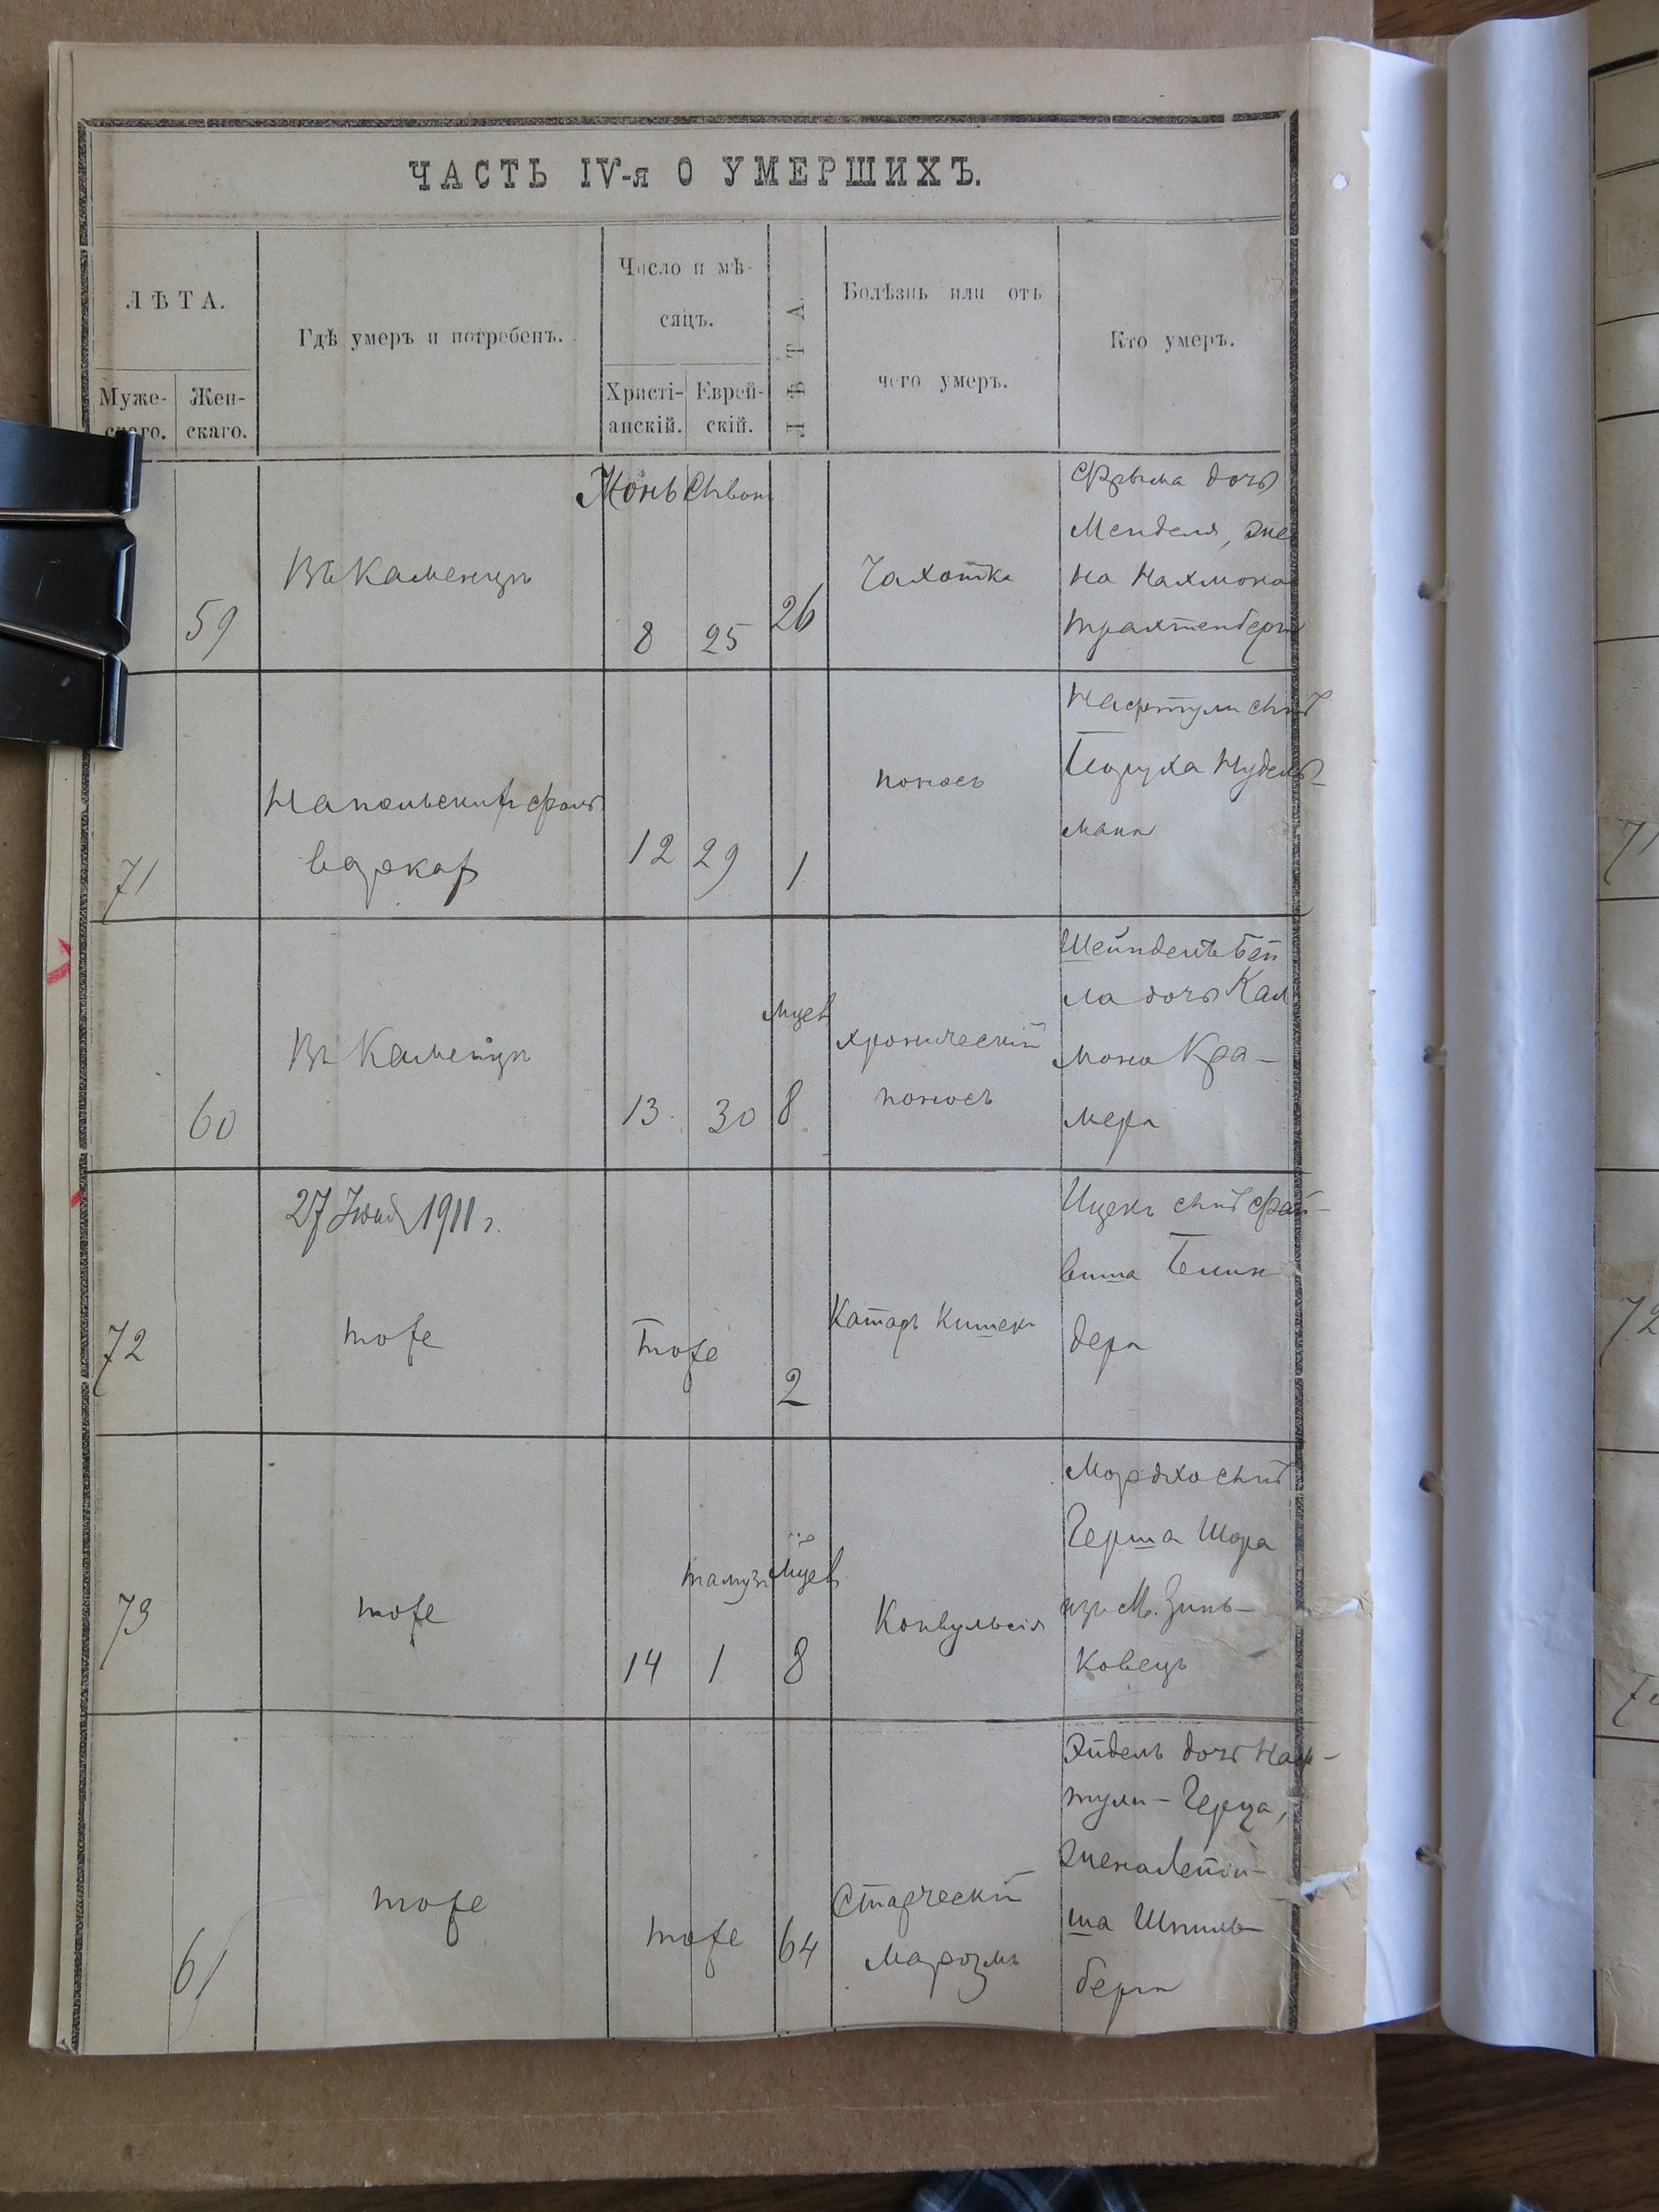 ЧАСТЬ IV-я О УМЕРШИХЪ.
ЛѢТА.
Муже-
скаго.
Жен-
скаго.
Гдѣ умеръ и погребенъ.
Число и мѣ-
сяцъ.
Христі-
анскій.
Еврей-
скій.
ЛѢТА.
Болѣзнь или отъ
чего умеръ.
Кто умеръ.
59
Въ Каменцѣ
Іюнь Сивонъ
8 25
26
Чахотка
Фрыма дочь
Менделя, же
на Нахмона
Трахтенберга
71
На польскихъ фоль
варкахъ
12 29
1
поносъ
Нафтули сынъ
Боруха Нудель-
мана
60
Въ Каменцѣ
13 30
мцев
8
хроническій
поносъ
Шейндель Бей
ла дочь Кал
мона Кра-
мера
72
27 1911 г.
тоже
Тоже
2
Катаръ Кишекъ
Ицекъ сынъ Фай-
виша
дера
73
тоже
тамузъ
14 1
мцев
8
Конвульсія
Мордхо сынъ
Герша Шора
изъ м. Зинь-
ковецъ
61
тоже
тоже
64
Старческій
марозмъ
Эйдель дочь Наф-
тули-Герца,
жена Лейви-
ша Шпиль-
берга
71
72